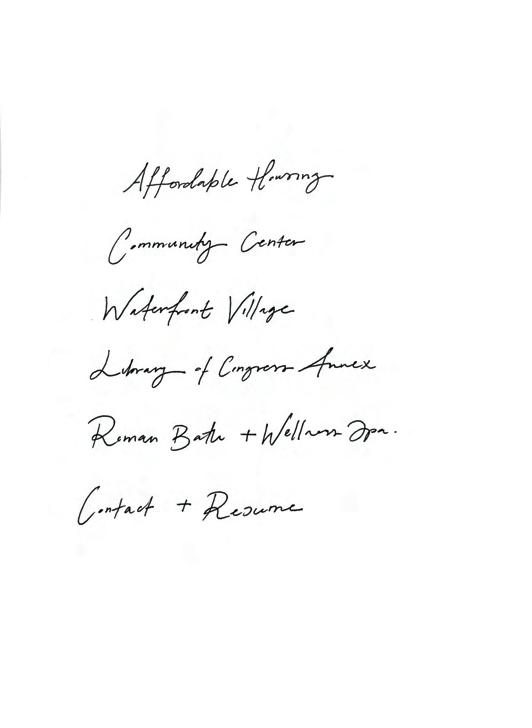 Affordable Housing
Community Center
Waterfront Village
Library of Congress Annex
Roman Bath + Wellness Spa.
Contact + Resume